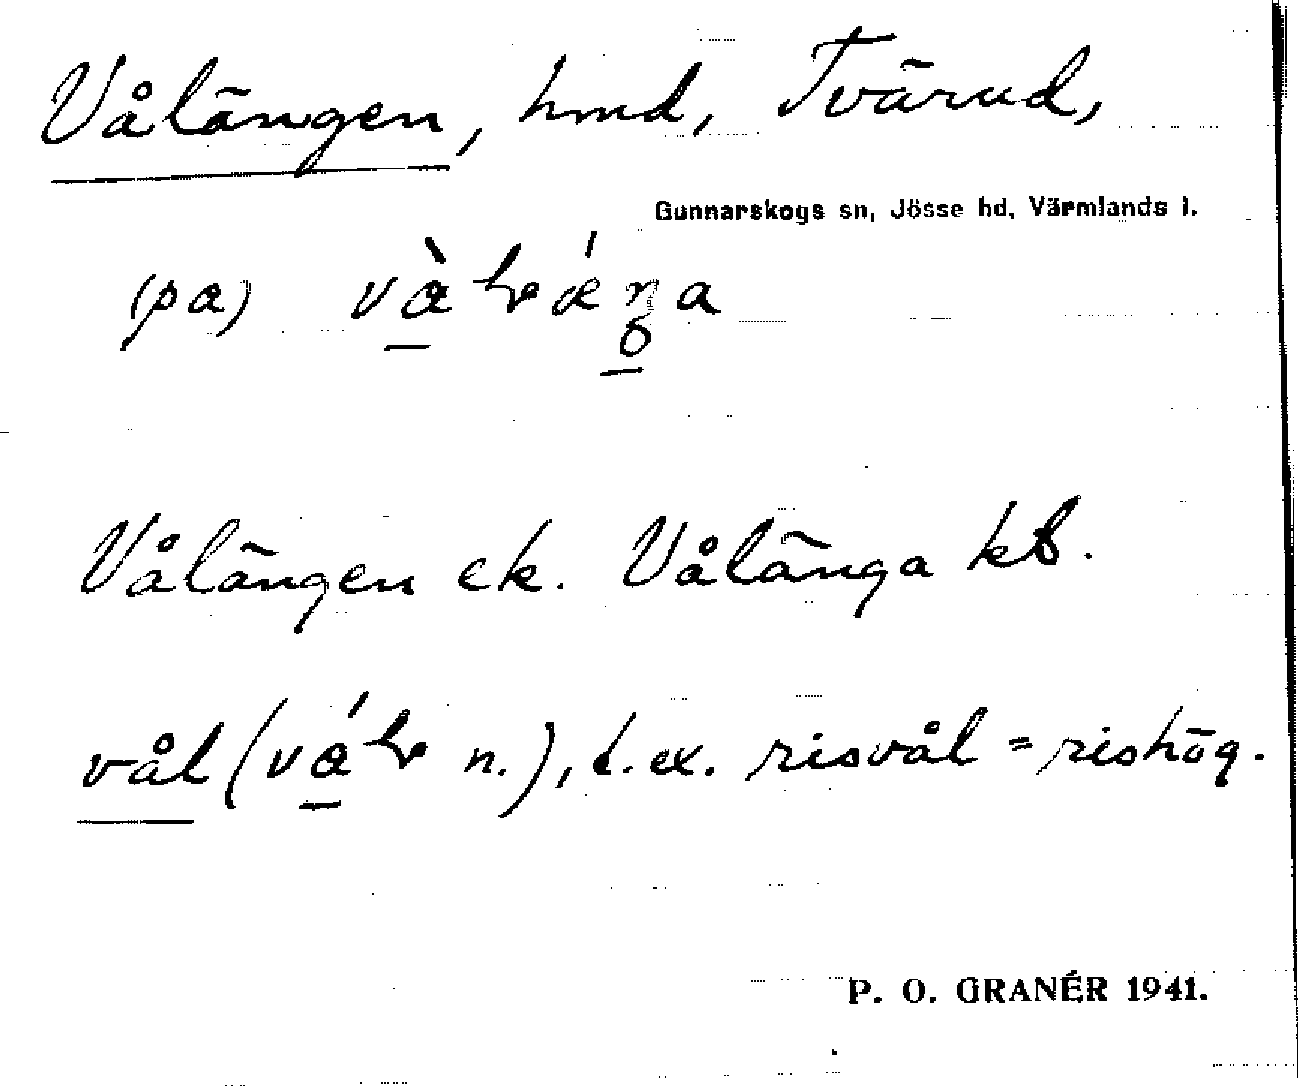 Vålängen, hmd, Tvärud,
Gunnarskogs sn, Jösse hd, Värmlands l.
(pa)
Vålängen ek. Vålänga kb.
vål ( n.), t.ex. risvål = rishög.
P. O. GRANÉR 1941.